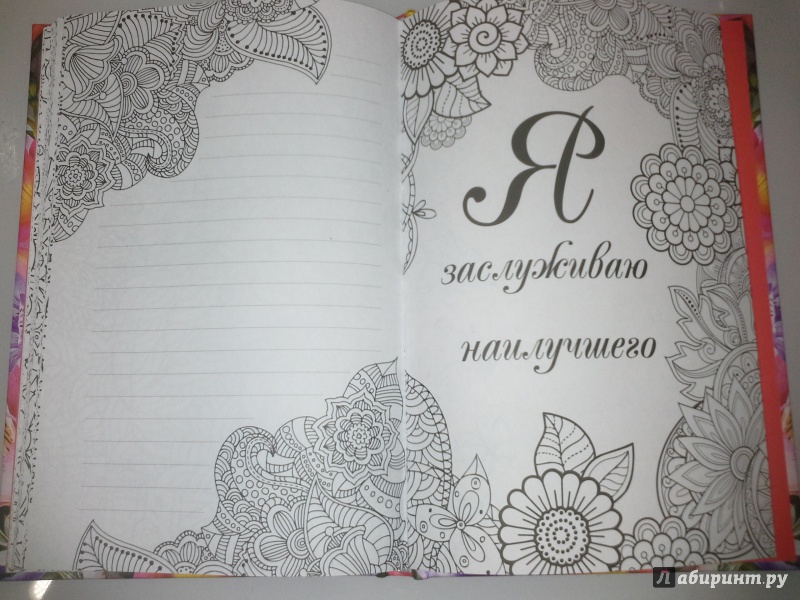 Я
заслуживаю
наилучшего
Лабиринт.ру